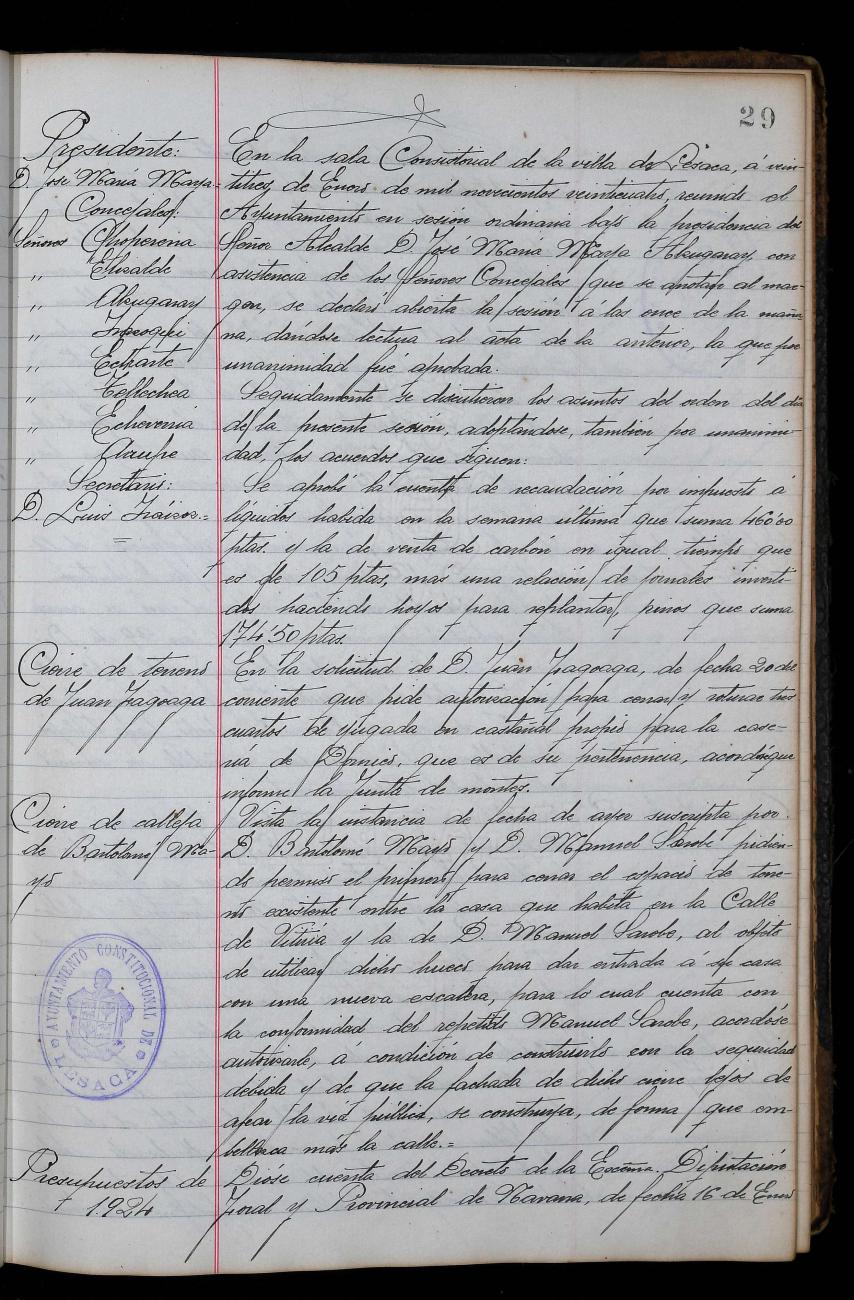 29
Presidente:
D. José María Marga=
Concejales:
Señores Choperena
" Elizalde
" Alzugaray
" Irazoqui
" Echarte
" Tellechea
" Echeverria
"
Secretario:
D. Luis
En la sala Consistorial de la villa de Lesaca, á vein-
titres de Enero de mil novecientos veinticuatro, reunido el
Ayuntamiento en sesion ordinaria bajo la presidencia del
Señor Alcalde D. José María Marga Alzugaray con
asistencia de los Señores Concejales que se anotan al mar-
gen, se declaró abierta la sesión á las once de la maña-
na, dándose lectura al acta de la anterior, la que por
unanimidad fué aprobada.
Seguidamente se discutieron los asuntos del orden del dia
de la presente sesión, adoptándose, también por unanimi-
dad, los acuerdos que siguen:
Se aprobó la cuenta de recaudación por impuesto á
líquidos habida en la semana última que suma 460'00
ptas. y la de venta de carbón en igual tiempo que
es de 105 ptas, más una relación de jornales inverti-
dos haciendo hoyos para replantar pinos que suma
174'50 ptas.
Cierre de terreno
de Juan Jagoaga
En la solicitud de D. Juan Jagoaga, de fecha 20 del
corriente que pide autorizacion para cerrar y roturar tres
cuartos de yugada en castañal propio para la case-
ria de que es de su pertenencia, acordóse que
informe la Junta de montes.
Cierre de calleja
de Bartolomé Ma-
yo
Vista la instancia de fecha de ayer suscripta por
D. Bartolomé Mayo y D. Manuel Sarobe pidien-
do permiso el primero para cerrar el espacio de terre-
no existente entre la casa que habita en la Calle
de Vitiria y la de D. Manuel Sarobe, al objeto
de utilizar dicho hueco para dar entrada á su casa
con una nueva escalera, para lo cual cuenta con
la conformidad del repetido Manuel Sarobe, acordóse
autorizarle, á condición de construirlo con la seguridad
debida y de que la fachada de dicho cierre lejos de
afear la via pública, se construya, de forma que em-
bellezca más la calle.=
AYUNTAMIENTO CONSTITUCIONAL DE
LESACA
Presupuestos de
1924
Dióse cuenta del Decreto de la Excma. Diputación
Foral y Provincial de Navarra, de fecha 16 de Enero